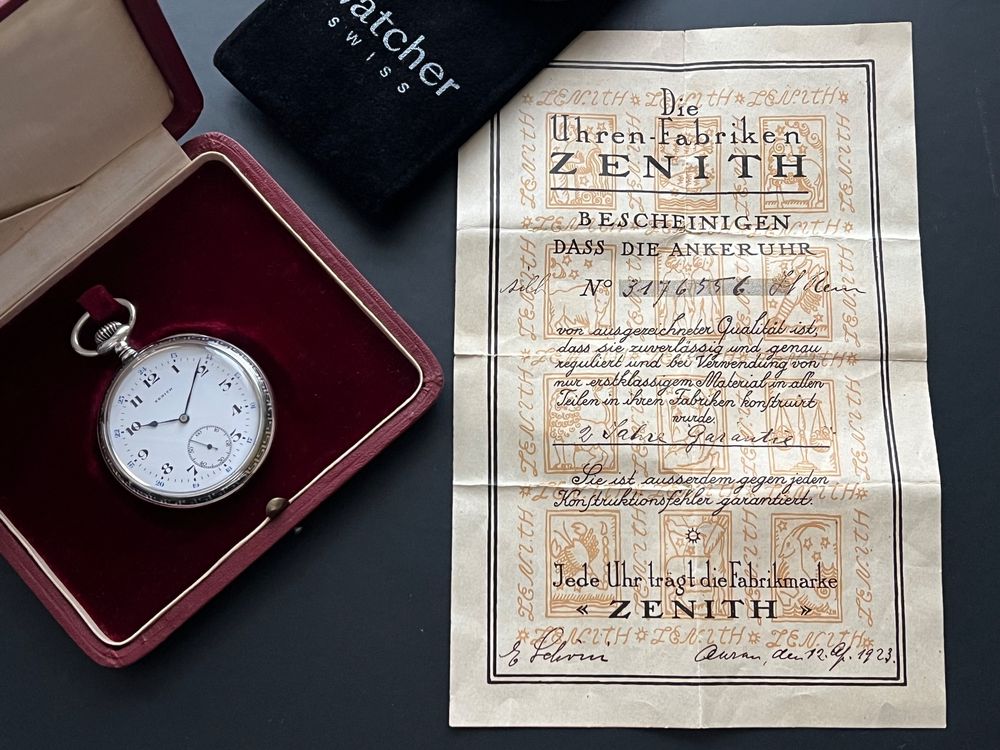 watcher
swiss
ZENITH
12 1 2 3 4 5 7 8 9 10 11
Die
Uhren-Fabriken
ZENITH
BESCHEINIGEN
DASS DIE ANKERUHR
No 3176556
von ausgezeichneter Qualität ist,
dass sie zuverlässig und genau
reguliert und bei Verwendung von
nur erstklassigem Material in allen
Teilen in ihren Fabriken konstruirt
wurde.
2 Jahre Garantie
Sie ist ausserdem gegen jeden
Konstruktionsfehler garantiert.
Jede Uhr trägt die Fabrikmarke
« ZENITH »
den 12. 1923.